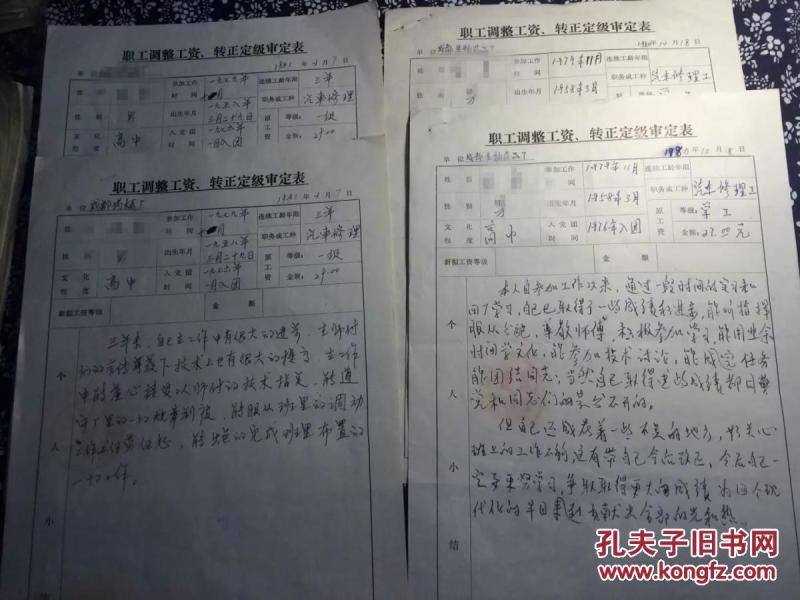 职工调整工资、转正定级审定表
1981年4月7日
参加工作时间
一九七九年
连续工龄年限
三年
性别
男
出生年月
一九五八年三月二十九日
职务或工种
汽車修理
文化程度
高中
入党团时间
一九七六年一月入团
原工资
一级
29.00
职工调整工资、转正定级审定表
单位
1981年4月7日
姓名
参加工作时间
一九七九年
连续工龄年限
三年
性别
男
出生年月
一九五八年三月二十九日
职务或工种
汽車修理
文化程度
高中
入党团时间
一九七六年一月入团
原工资
等级:一级
金额:29.00
新拟工资等级
金额
个人小结
三年来,自己在工作中有很大的进步,在师付
技术上也有很大的提高,在工作
中能虚心接受以师付的技术指导,能遵
守厂里的一切规章制度,能服从班里的调动
能完成班里布置的
一切工作。
职工调整工资、转正定级审定表
单位
10月18日
参加工作时间
1979年11月
连续工龄年限
出生年月
1958年3月
职务或工种
汽车修理工
职工调整工资、转正定级审定表
单位
1980年10月18日
姓名
参加工作时间
1979年11月
连续工龄年限
性别
男
出生年月
1958年3月
职务或工种
汽车修理工
文化程度
高中
入党团时间
1976年入团
原工资
等级:学工
金额:27.00元
新拟工资等级
金额
个人小结
本人自参加工作以来,通过一段时间的学习和
回厂学习,自己取得了一些成绩和进步,能听指挥
服从分配,尊敬师傅,积极参加学习,能用业余
时间学文化,能参加技术讨论,能完成任务
能团结同志,当然自己取得这些成绩都归
党和同志们的是分不开的。
但自己还存在着一些不足的地方,
班上的工作不够,这有待自己今后改正,今后自己一
定要努力学习,争取取得更大的成绩,为四个现
代化的早日实现贡献出全部的光和热。
孔夫子旧书网
KONGFZ.COM